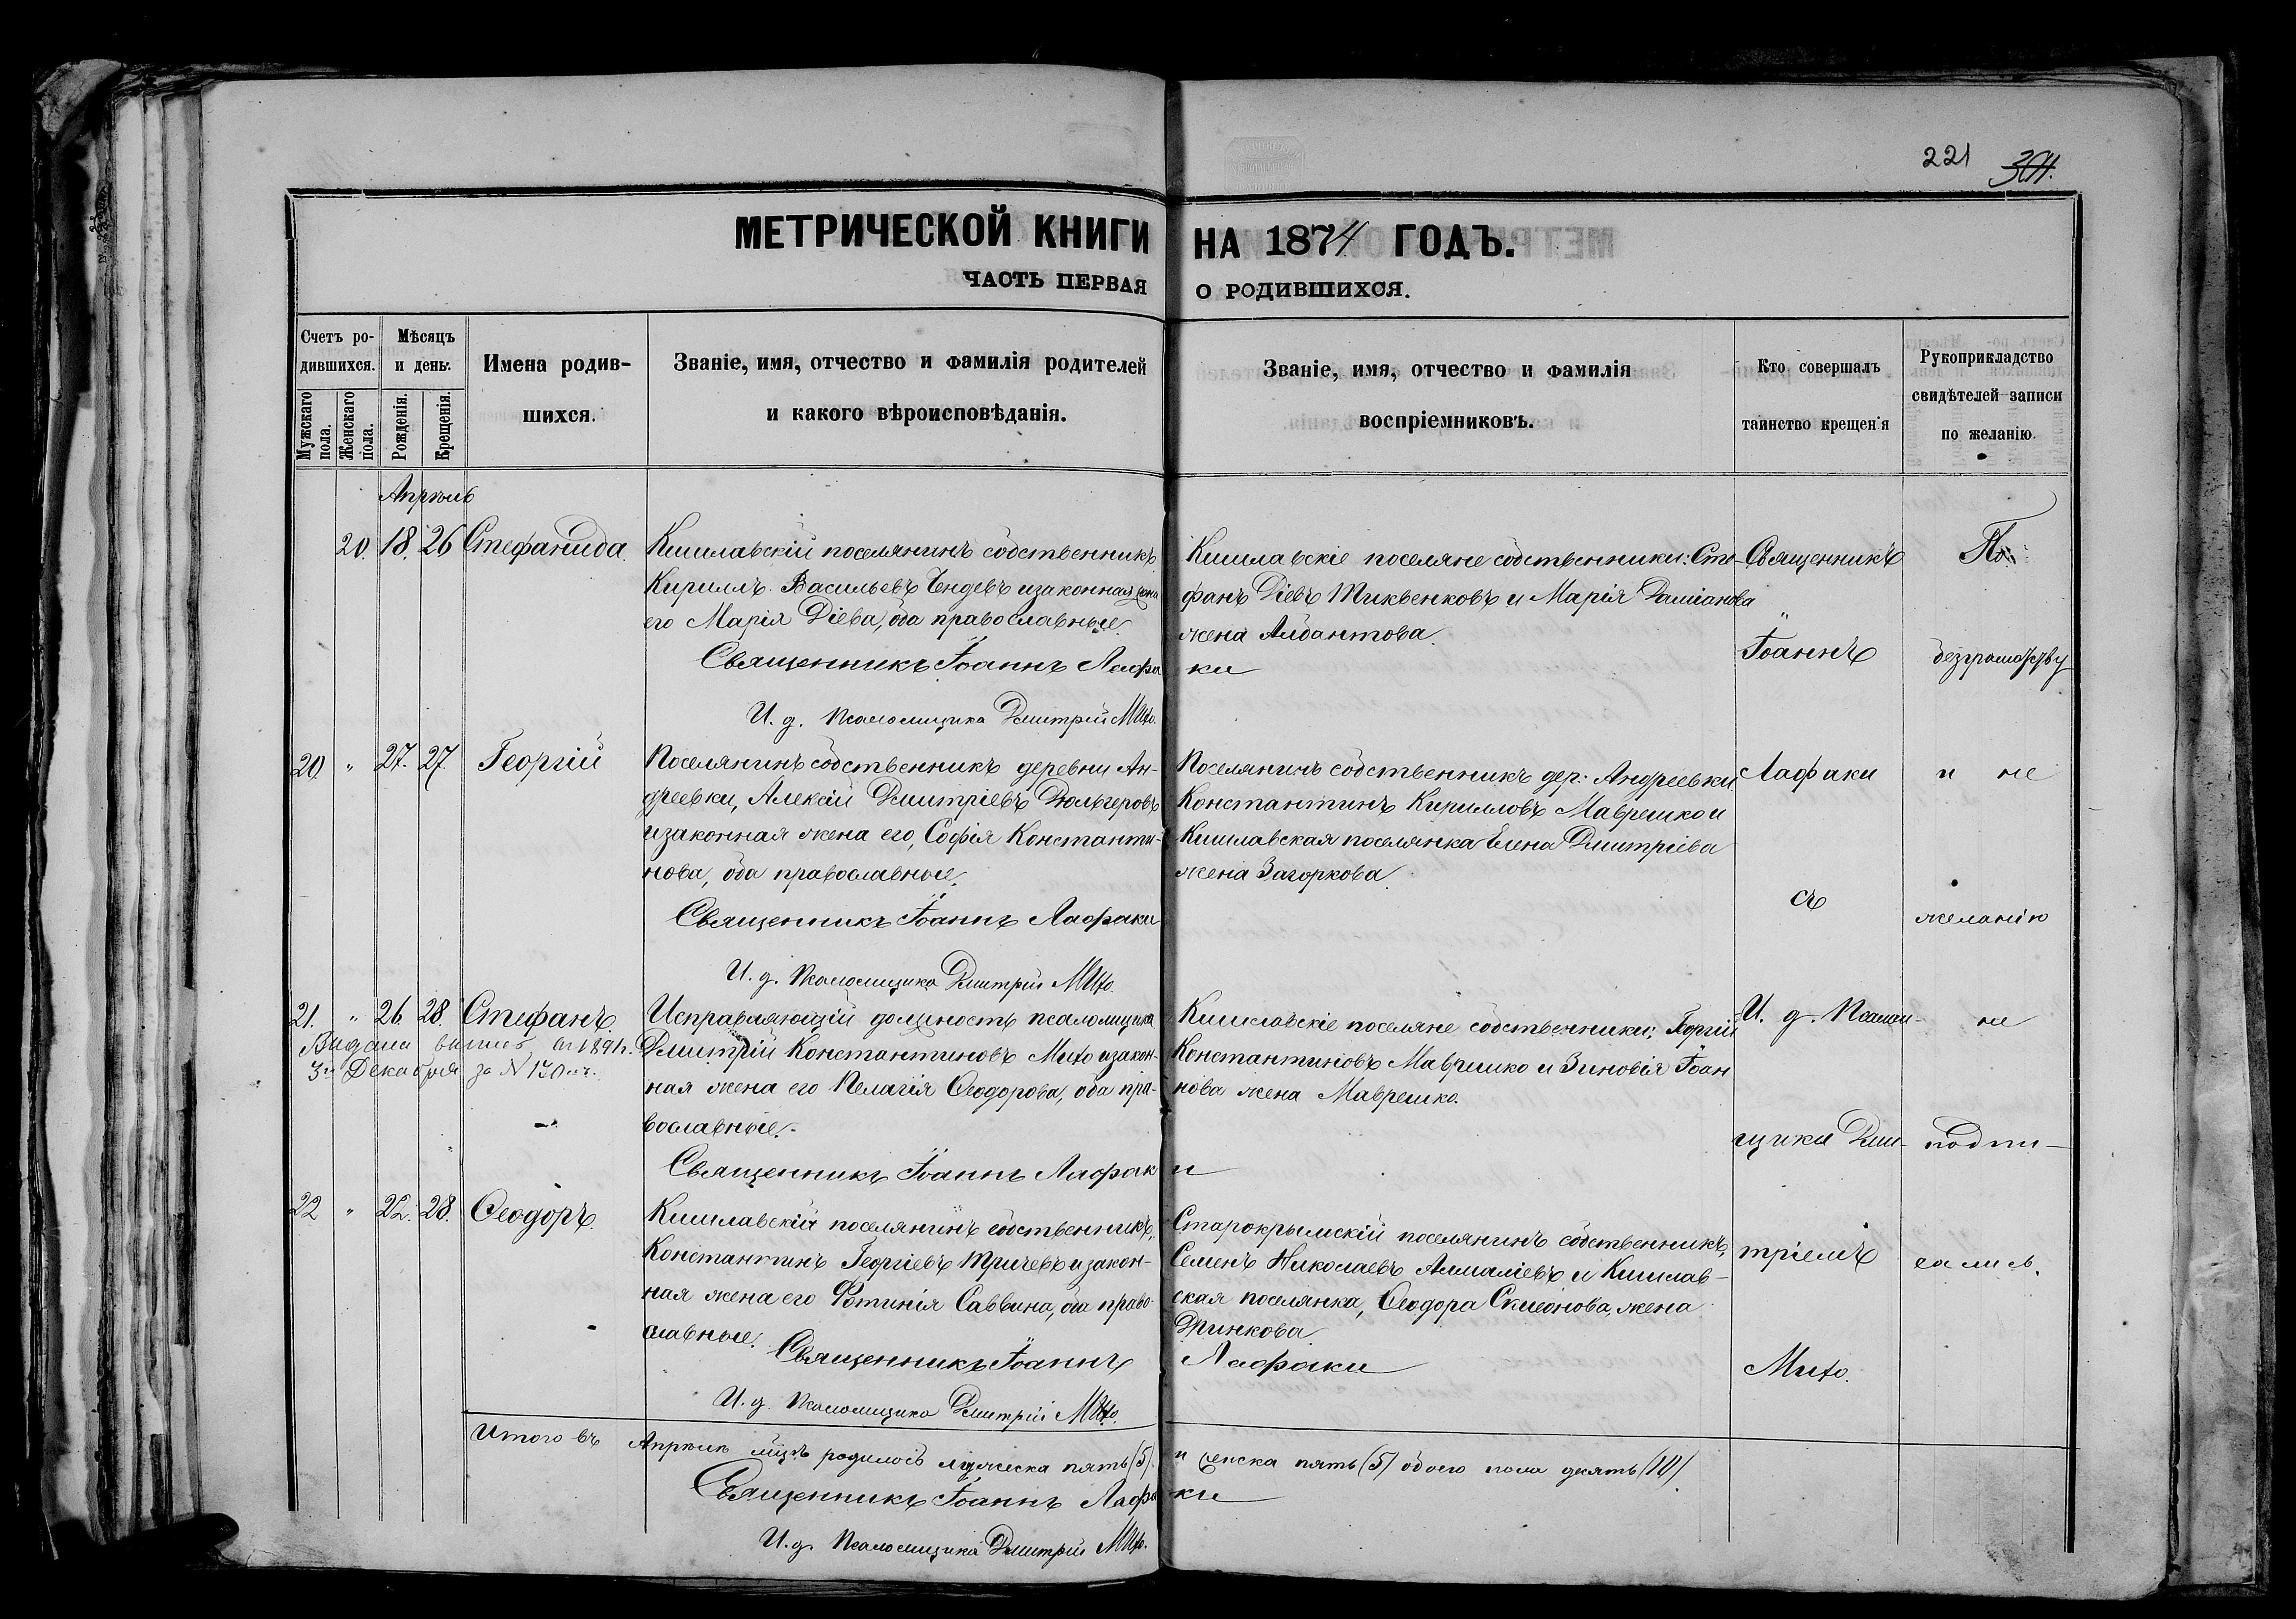 221 301.
МЕТРИЧЕСКОЙ КНИГИ НА 1874 ГОДЪ.
ЧАСТЬ ПЕРВАЯ О РОДИВШИХСЯ.
Счетъ ро-
дившихся.
Мужскаго пола.
Женскаго пола.
Мѣсяцъ
и день.
Рожденія.
Крещенія.
Имена родив-
шихся.
Званіе, имя, отчество и фамилія родителей
и какого вѣроисповѣданія.
Званіе, имя, отчество и фамилія
воспріемниковъ.
Кто совершалъ
таинство крещенія
Рукоприкладство
свидѣтелей записи
по желанію.
Апрѣль
20. 18. 26 Стефанида
Кишлавскій поселянинъ собственникъ
Кириллъ Васильевъ Чендевъ и законная жена
его Марія Діева, оба православные.
Священникъ Іоаннъ Лафаки
И. д. псаломщика Дмитрій Михо.
Кишлавскіе поселяне собственники: Сте-
фанъ Діевъ Тиквенковъ и Марія Даміанова
жена Алдантова.
20. " 27. 27. Георгій
Поселянинъ собственникъ деревни Ан-
дреевки, Алексій Дмитріевъ Дюльгеровъ
и законная жена его, Софія Константи-
нова, оба православные.
Священникъ Іоаннъ Лафаки
И. д. псаломщика Дмитрій Михо.
Поселянинъ собственникъ дер. Андреевки
Константинъ Кирилловъ Маврешко и
Кишлавская поселянка Елена Дмитріева
жена Загоркова.
21. " 26. 28. Стефанъ.
Видана выпись въ 1891 г.
3го Декабря за N 130
Исправляющій должность псаломщика
Дмитрій Константиновъ Михо и закон-
ная жена его Пелагія Ѳеодорова, оба пра-
вославные.
Священникъ Іоаннъ Лафаки
Кишлавскіе поселяне собственники: Георгій
Константиновъ Маврешко и Зиновія Іоан
нова жена Маврешко.
22 " 22. 28. Ѳеодоръ.
Кишлавскій поселянинъ собственникъ,
Константинъ Георгіевъ Тричевъ и закон-
ная жена его Фотинія Саввина, оба право-
славные.
Священникъ Іоаннъ Лафаки
И. д. псаломщика Дмитрій Михо.
Старокрымскій поселянинъ собственникъ,
Семенъ Николаевъ Алмаліевъ и Кишлав-
ская поселянка, Ѳеодора Симеонова, жена
Дринкова.
Священникъ
Іоаннъ
Лафаки
съ
И. д. Псалом-
щика Дми-
тріемъ
Михо.
По
безграмотству
и не
желанію
не
подпи-
сались.
Итого въ Апрѣлѣ мцѣ родилось мужеска пять (5). и женска пять (5) обоего пола десять (10).
Священникъ Іоаннъ Лафаки
И. д. Псаломщика Дмитрій Михо.